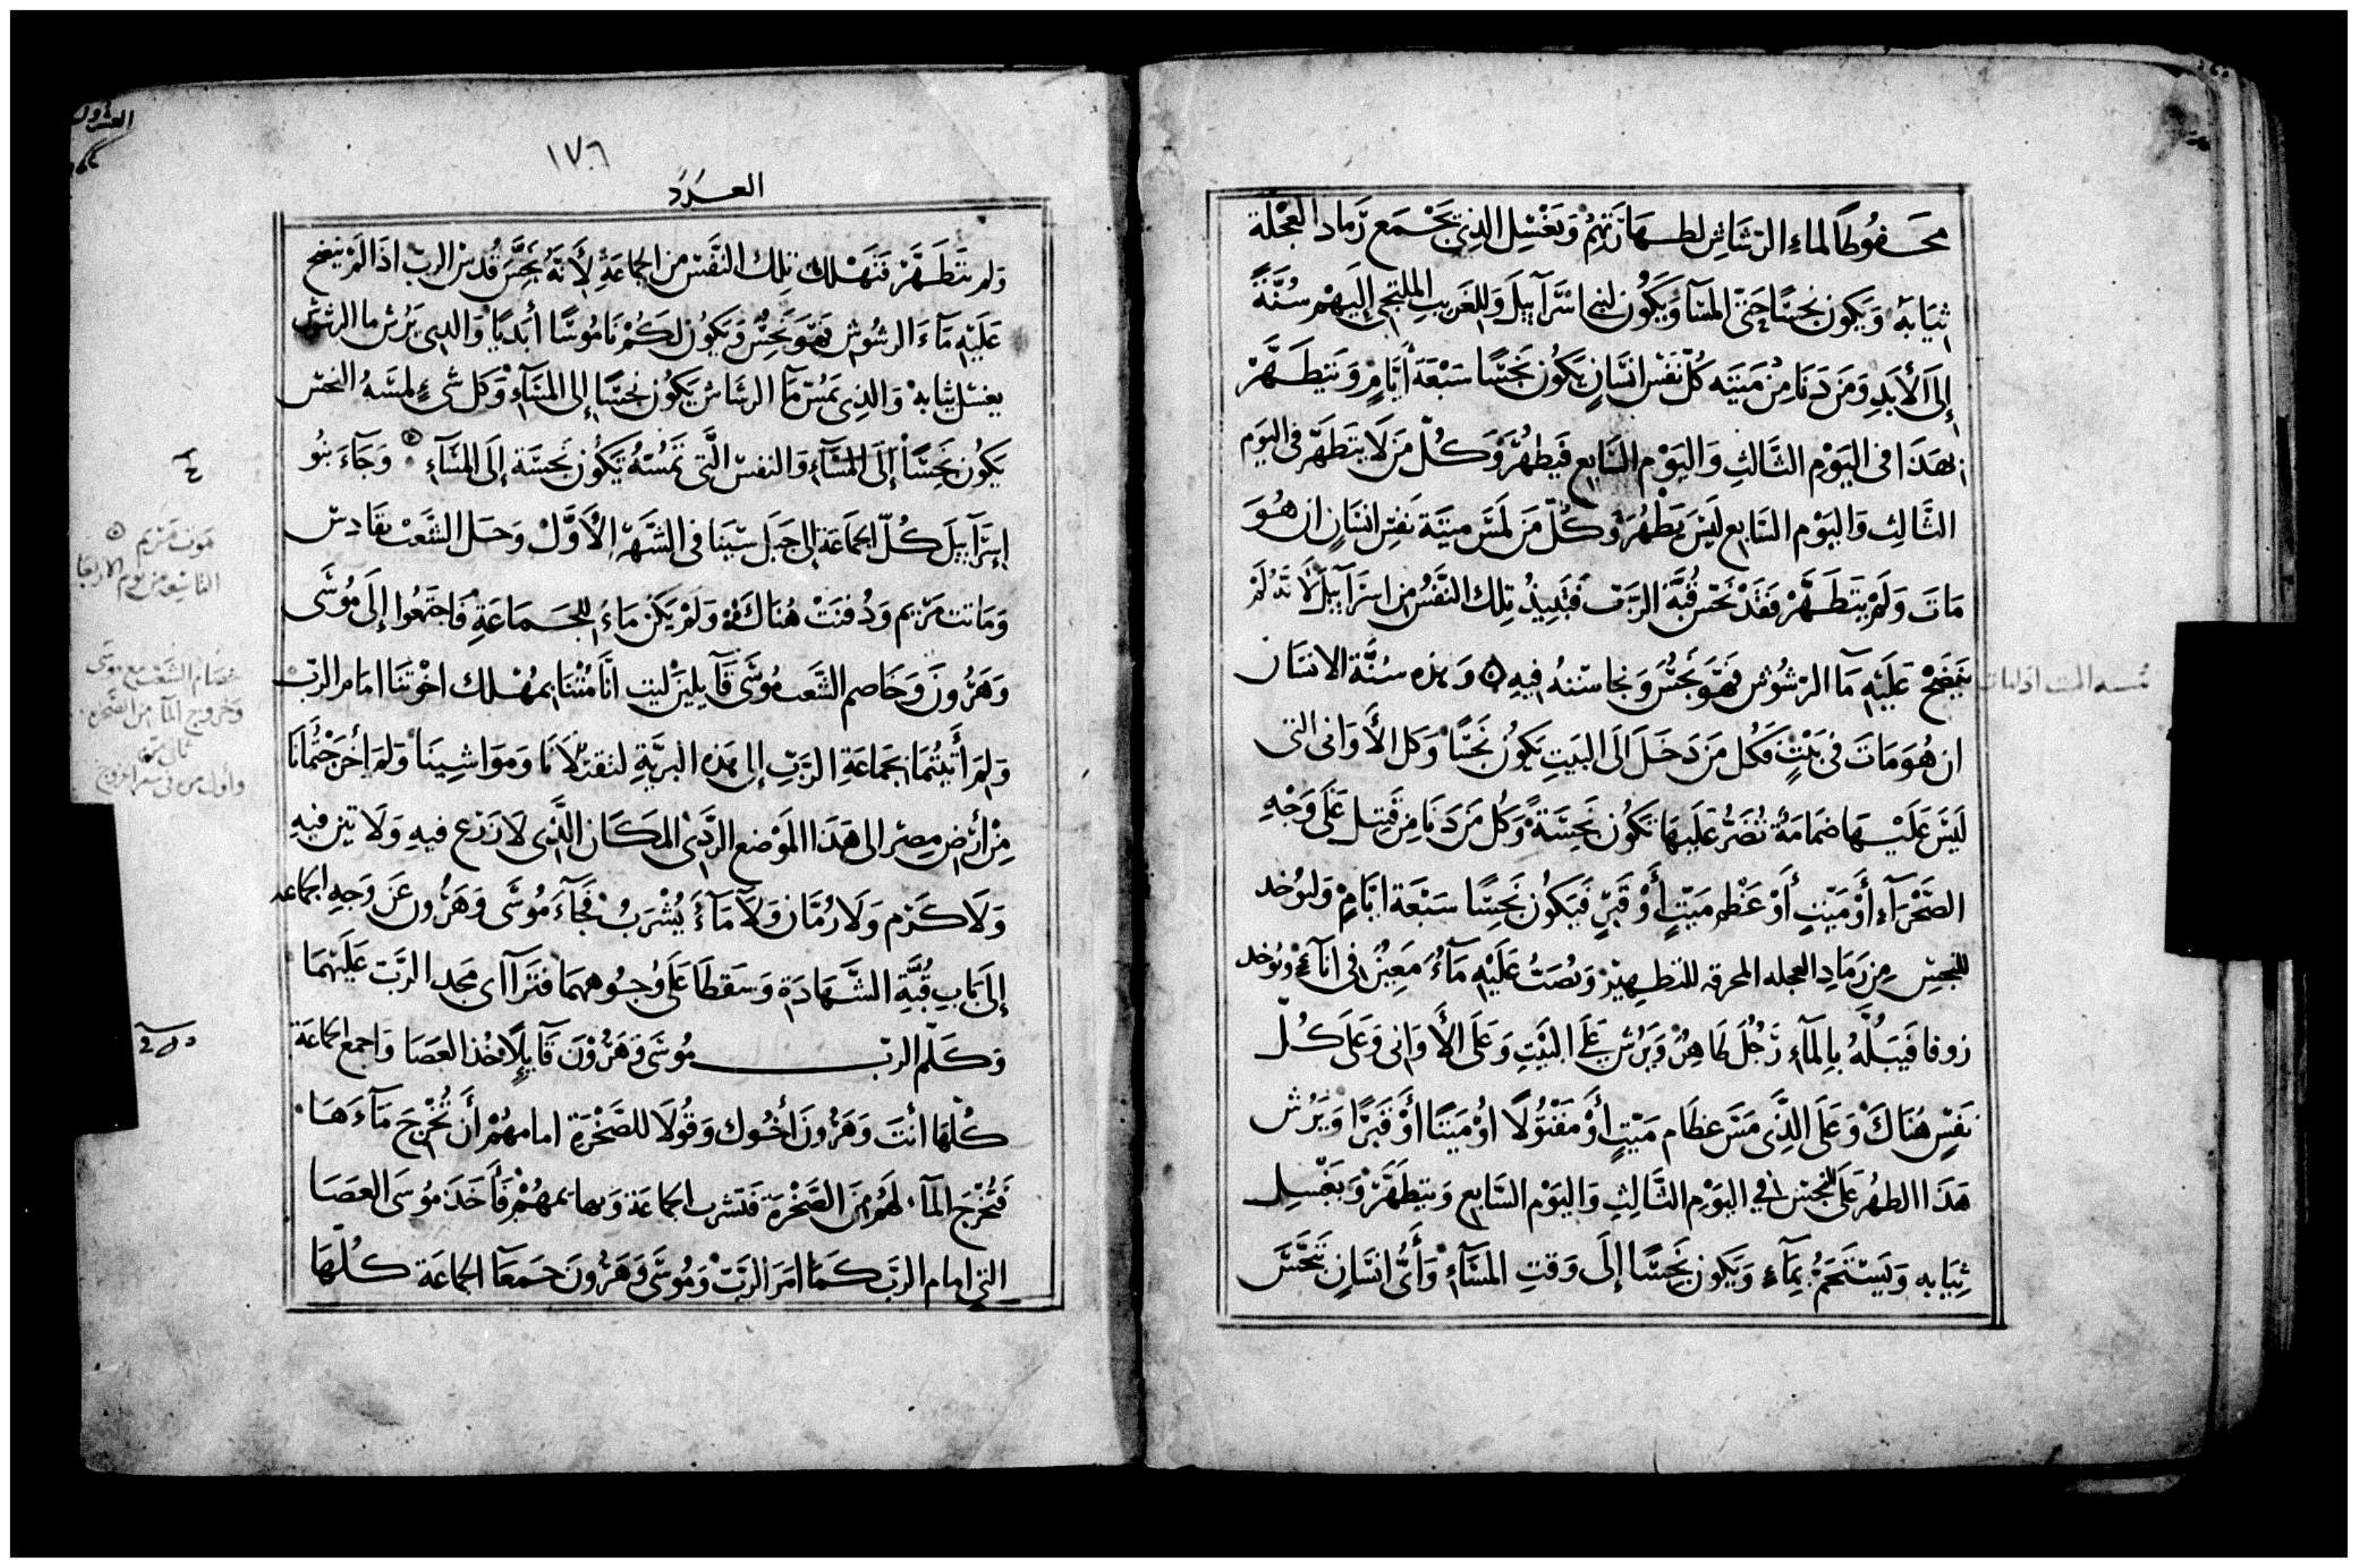 محفوظًا لماء الرشاش لطهارتهم ويغسل الذي يجمع رماد العجلة
ثيابه ويكون نجسًا حتى المسآ ويكون لبني اسرآييل وللغريب الملتجي إليهم سُنَّةً
إلى الأبد ومن دنا من ميته كل نفس انسان يكون نجسًا سبعة أيام ويتطهر
بهذا في اليوم الثالث واليوم السابع فيطهر وكل من لا يتطهر في اليوم
الثالث واليوم السابع ليس يطهر وكل من لمس ميتة نفس انسان ان هو
مات ولم يتطهر فقد نجس قبة الرب فتبيد تلك النفس من اسرآييل لانه لم
ينضح عليه مآ الرشوش فهو نجس ونجاسته فيه وهذه سنة الانسان
ان هو مات في بيت فكل من دخل الى البيت يكون نجسًا وكل الأواني التي
ليس عليها ضمامة تضر عليها تكون نجسة وكل من دنا من قتيل على وجه
الصحرآء أو ميت أو عظم ميت أو قبر فيكون نجسًا سبعة ايام وليوخد
للنجس من رماد العجله المحرقه للتطهير ويصب عليه مآء معين في انآء ويوخد
زوفا فيبله بالمآء رجل طاهر ويرش على البيت وعلى الأواني وعلى كل
نفس هناك وعلى الذي مس عظام ميت أو مقتولًا او ميتا أو قبرًا ويرش
هذا الطهر على النجس في اليوم الثالث واليوم السابع ويتطهر ويغسل
ثيابه ويستحم بمآء ويكون نجسًا إلى وقت المسآء وأي انسان تنجس
١٧٦
العدد
ولم يتطهر فتهلك تلك النفس من الجماعة لأنه نجس قدس الرب اذا لم ينضح
عليه مآء الرشوش فهو نجس ويكون لكم ناموسًا أبديا والدي يرش ما الرشوش
يغسل ثيابه والذي يمس مآ الرشاش يكون نجسًا إلى المسآء وكل شيء لمسه النجس
يكون نجسًا إلى المسآء والنفس التي تمسه تكون نجسة إلى المسآء وجآء بنو
إسرآييل كل الجماعة إلى جبل سينا في الشهر الأول وحل الشعب بقادس
وماتت مريم ودفنت هناك ولم يكن ماء للجماعة فاجتمعوا إلى موسى
وهرون وخاصم الشعب موسى قآيلين ليت انا متنا بمهلك اخوتنا امام الرب
ولم أتيتما بجماعة الرب إلى هذه البرية لتقتلانا ومواشينا ولم أخرجتمانا
من أرض مصر الى هذا الموضع الردي المكان الذي لا زرع فيه ولا تين فيه
ولا كرم ولا رمان ولا مآء يشرب فجآء موسى وهرون عن وجه الجماعه
إلى باب قبة الشهادة وسقطا على وجوههما فترآاى مجد الرب عليهما
وكلم الرب موسى وهرون قآيلًا خذ العصا واجمع الجماعة
كلها أنت وهرون أخوك وقولا للصخرة امامهم أن تخرج مآءها
فتخرج المآ لهم من الصخرة فتشرب الجماعة وبهايمهم فأخذ موسى العصا
التي امام الرب كما امر الرب وموسى وهرون جمعآ الجماعة كلها
موت مريم
خصام الشعب مع موسى
وخروج المآ من الصخره